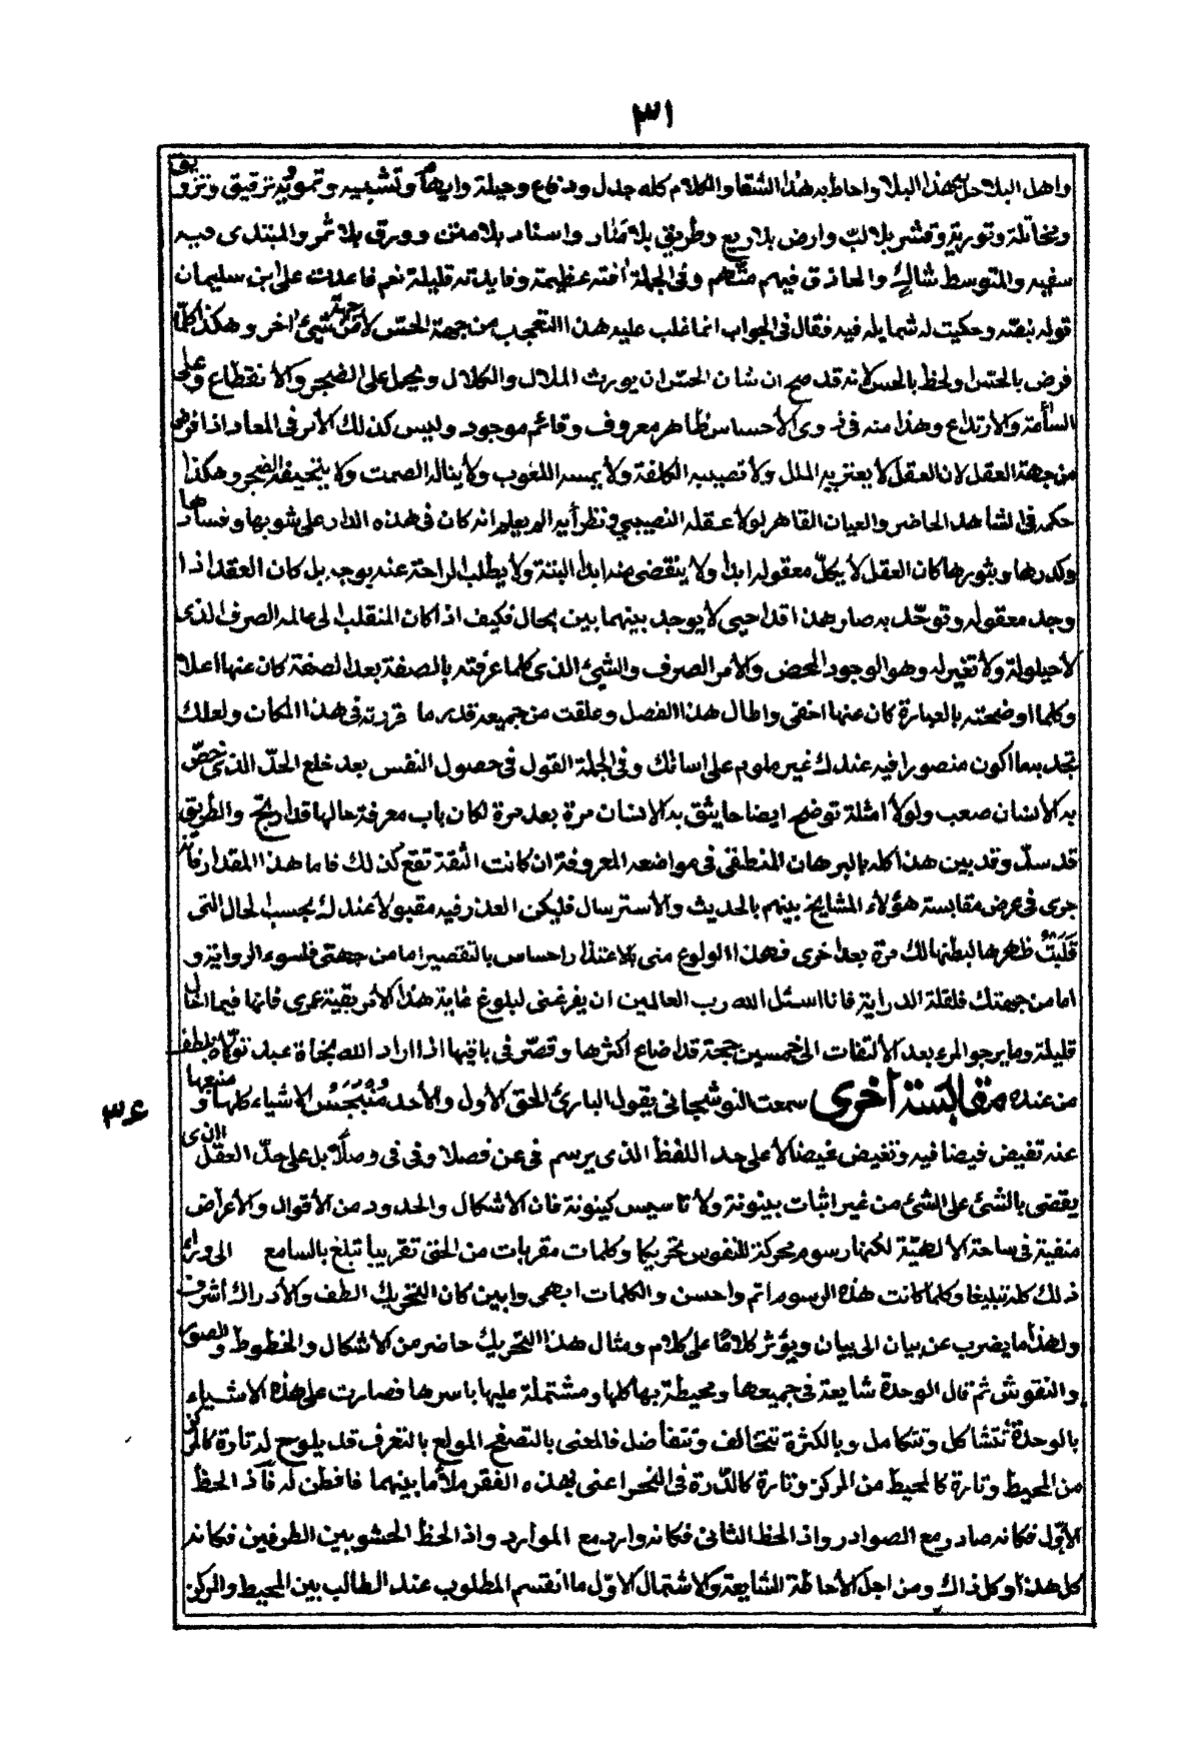 ٣١
واهل البلا حل بهذا البلا واحاط به هذا الشقا والكلام كله جدل ودفاع وحيلة وايهام وتشبيه وتمويه وترقيق وتزويق
ومخاتلة وتورية وقشر بلا لب وارض بلا ريع وطريق بلا منار واسناد بلا متن وورق بلا ثمر والمبتدى فيه
سفيه والمتوسط شاك والحاذق فيهم متهم وفى الجملة افته عظيمة وفايدته قليلة نعم فاعدت على ابن سليمان
قوله بنصه وحكيت له شمايله فيه فقال فى الجواب انما غلب عليه هذا التعجب من جهة الحس لا من جهة شيئ اخر وهكذا كلما
فرض بالحس او لحظ بالحس لانه قد صح ان شان الحس ان يورث الملال والكلال ويحمل على الضجر والانقطاع وعلى
السأمة والارتداع وهذا منه فى ذوى الأحساس ظاهر معروف وقائم موجود وليس كذلك الأمر فى المعاد اذا فرض
من جهة العقل لان العقل لا يعتريه الملل ولا تصيبه الكلفة ولا يمسه اللغوب ولا يناله الصمت ولا يتحيفه الضجر وهكذا
حكمه فى الشاهد الحاضر والعيان القاهر لولا عقله النصيبي فى نظرأيه الم يعلم انه كان فى هذه الدار على شوبها وفسادها
وكدرها وبثورها كان العقل لا يكل معقوله ابدا ولا ينقضى منه ابدا البتة ولا يطلب الراحة عنه بوجه بل كان العقل اذا
وجد معقوله وتوحد به صار هذا اقدا حيى لا يوجد بينهما بين بحال فكيف اذا كان المنقلب الى عالمه الصرف الذى
لا حيلولة ولا تغير له وهو الوجود المحض والأمر الصرف والشيئ الذى كلما عرفته بالصفة بعد الصفة كان عنها اعلا
وكلما اوضحته بالعبارة كان عنها اخفى واطال هذا الفصل وعلقت من جميعه قدر ما قررته فى هذا المكان ولعلك
تجد بما اكون منصورا فيه عندك غير ملوم على اسائك وفى الجملة القول فى حصول النفس بعد خلع الحد الذى خص
به الأنسان صعب ولولا امثلة توضح ايضاحا يثق به الانسان مرة بعد مرة لكان باب معرفة حالها قد ارتج والطريق
قد سد وقد بين هذا كله بالبرهان المنطقى فى مواضعه المعروفة ان كانت الثقة تقع كذلك فاما هذا المقدار فانه
جرى فى عرض مقابسة هؤلاء المشايخ بينهم بالحديث والأسترسال فليكن العذر فيه مقبولا عندك بحسب الحال التى
قلبت ظهرها لبطنها لك مرة بعد اخرى فهذا الولوع منى بالاعتذار احساس بالتقصير اما من جهتى فلسوء الرواية و
اما من جهتك فلقلة الدراية فانا اسئل الله رب العالمين ان يفرغنى لبلوغ غاية هذا الأمر بقية عمرى فانها فيما اخال
قليلة وما يرجو المرء بعد الألتفات الى خمسين حجة قد اضاع اكثرها وقصر فى باقيها اذا اراد الله نجاة عبد تولاه بلطف
من عنده مقابسة أخرى سمعت النوشجانى يقول البارئ الحق الأول والأحد منبجس الاشياء كلها ومنبعها
٣٤
عنه تفيض فيضا فيه وتغيض غيضا لا على حد اللفظ الذى يرسم فى عن فصلا وفى فى وصلا بل على حد العقل الذى
يقضى بالشئ على الشئ من غير اثبات بينونة ولا تاسيس كينونة فان الاشكال والحدود من الأقوال والأعراض
منفية فى ساحة الالهية لكنها رسوم محركة للنفوس تحريكا وكلمات مقربات من الحق تقريبا تبلغ بالسامع الى وراء
ذلك كله تبليغا وكلما كانت هذه الرسوم اتم واحسن والكلمات ابهى وابين كان التحريك الطف والأدراك اشرف
ولهذا ما يضرب عن بيان الى بيان ويؤثر كلاما على كلام ومثال هذا التحريك حاضر من الاشكال والخطوط والصور
والنقوش ثم قال الوحدة شايعة فى جميعها ومحيطة بها كلها ومشتملة عليها باسرها فصارت على هذه الاشياء
بالوحدة تتشاكل وتتكامل وبالكثرة تتخالف وتتفاضل فالمعنى بالتصفح المولع بالتعرف قد يلوح له تارة كالمركز
من المحيط وتارة كالمحيط من المركز وتارة كالدرة فى البحر اعنى بهذه الفقر ملأ ما بينهما فافطن له فآذ الحظ
الأول فكانه صادر مع الصوادر واذ الحظ الثانى فكانه وارد مع الموارد واذ الحظ الحشو بين الطرفين فكانه
كل هذا او كل ذاك ومن اجل الأحاطة الشايعة والاشتمال الاول ما انقسم المطلوب عند الطالب بين المحيط والمركز